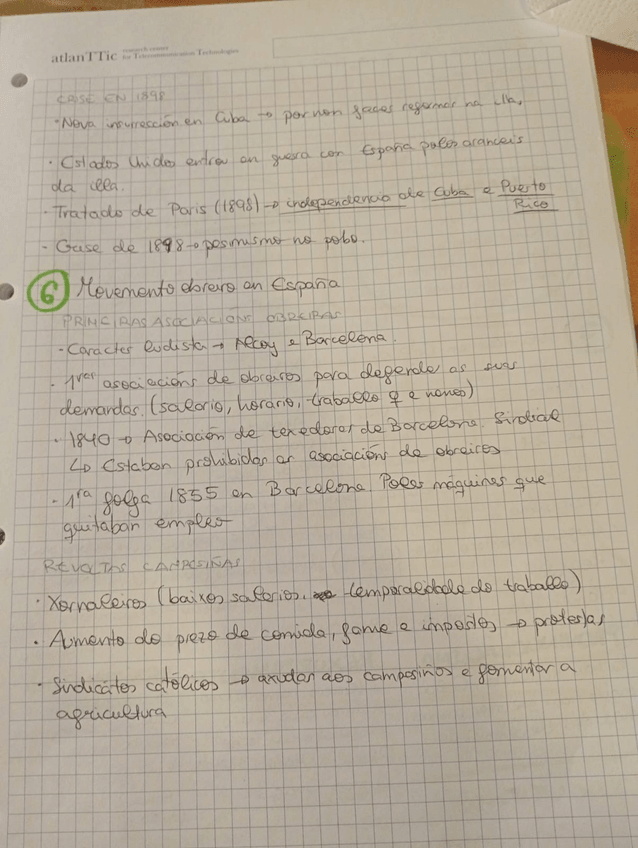 atlanTTic research center for Telecommunication Technologies
CRISE EN 1898
· Nova insurrección en Cuba → por non faces reformas na illa.
· Estados Unidos entrou en guerra con España polos aranceis
da illa.
· Tratado de Paris (1898) → independencia de Cuba e Puerto
Rico
· Crise de 1898 → pesimismo no pobo.
6 Movemento obreiro en España
PRINCIPAIS ASOCIACIONS OBREIRAS
· Caracter ludista → Alcoy e Barcelona.
· 1ras asociacións de obreiros para defender as suas
demandas. (salario, horario, traballo ♀ e nenos)
· 1840 → Asociación de texedores de Barcelona. Sindical
↳ Estaban prohibidas as asociacións de obreiros
· 1ra folga 1855 en Barcelona. Polas máquinas que
quitaban empleo
REVOLTAS CAMPESIÑAS
· Xornaleiros (baixos salarios, temporalidade do traballo)
· Aumento do prezo de comida, fame e impostos → protestas
· Sindicatos católicos → axudar aos campesiños e fomentar a
agricultura